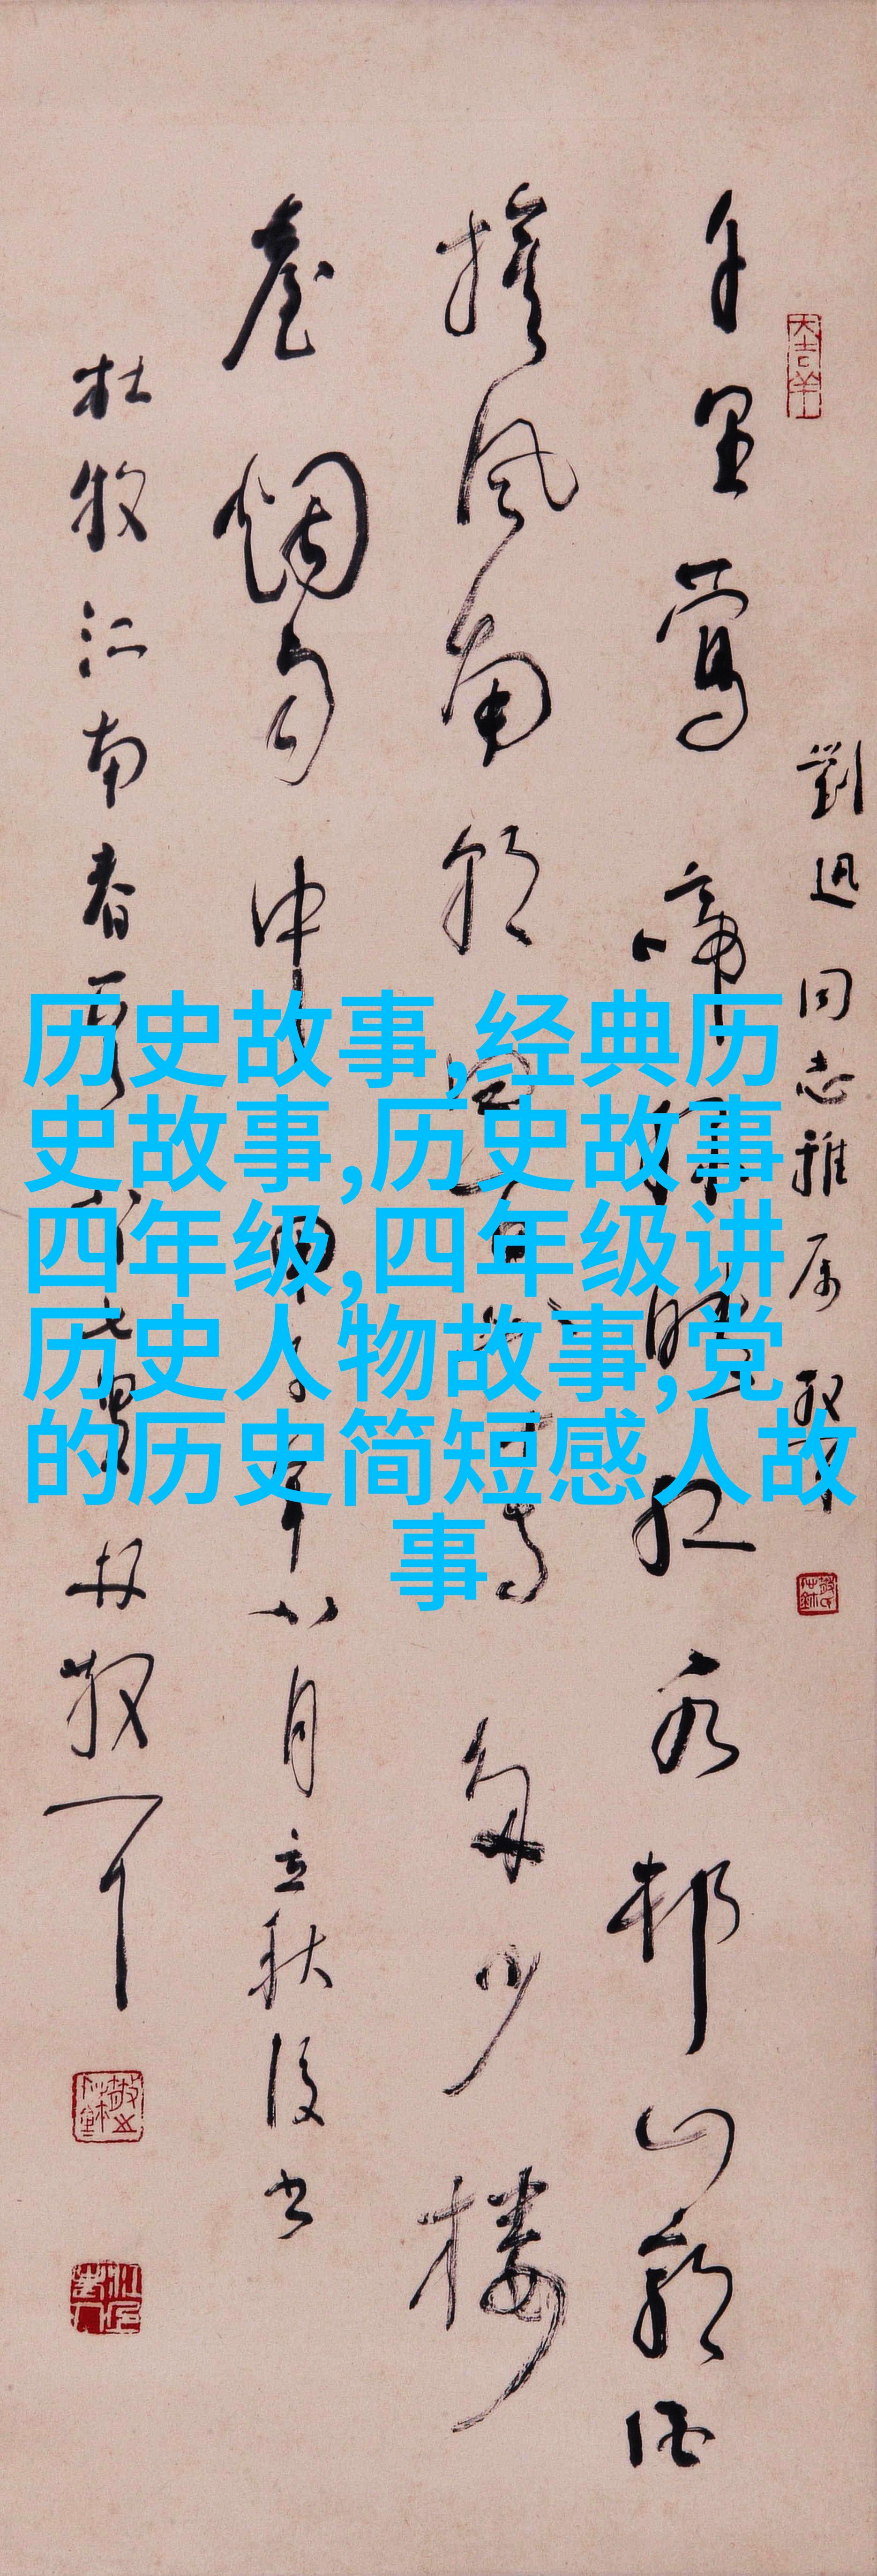 历史故事,经典历
史故事,历史故事
四年级,四年级讲
历史人物故事,党
的历史简短感人故
事
大吉羊
劉迅同志雅属
千里鶯啼綠映红水邨山郭酒
旗風南朝四百八十寺多少楼
臺烟雨中 子年八月立秋後书
杜牧江南春 林散耳